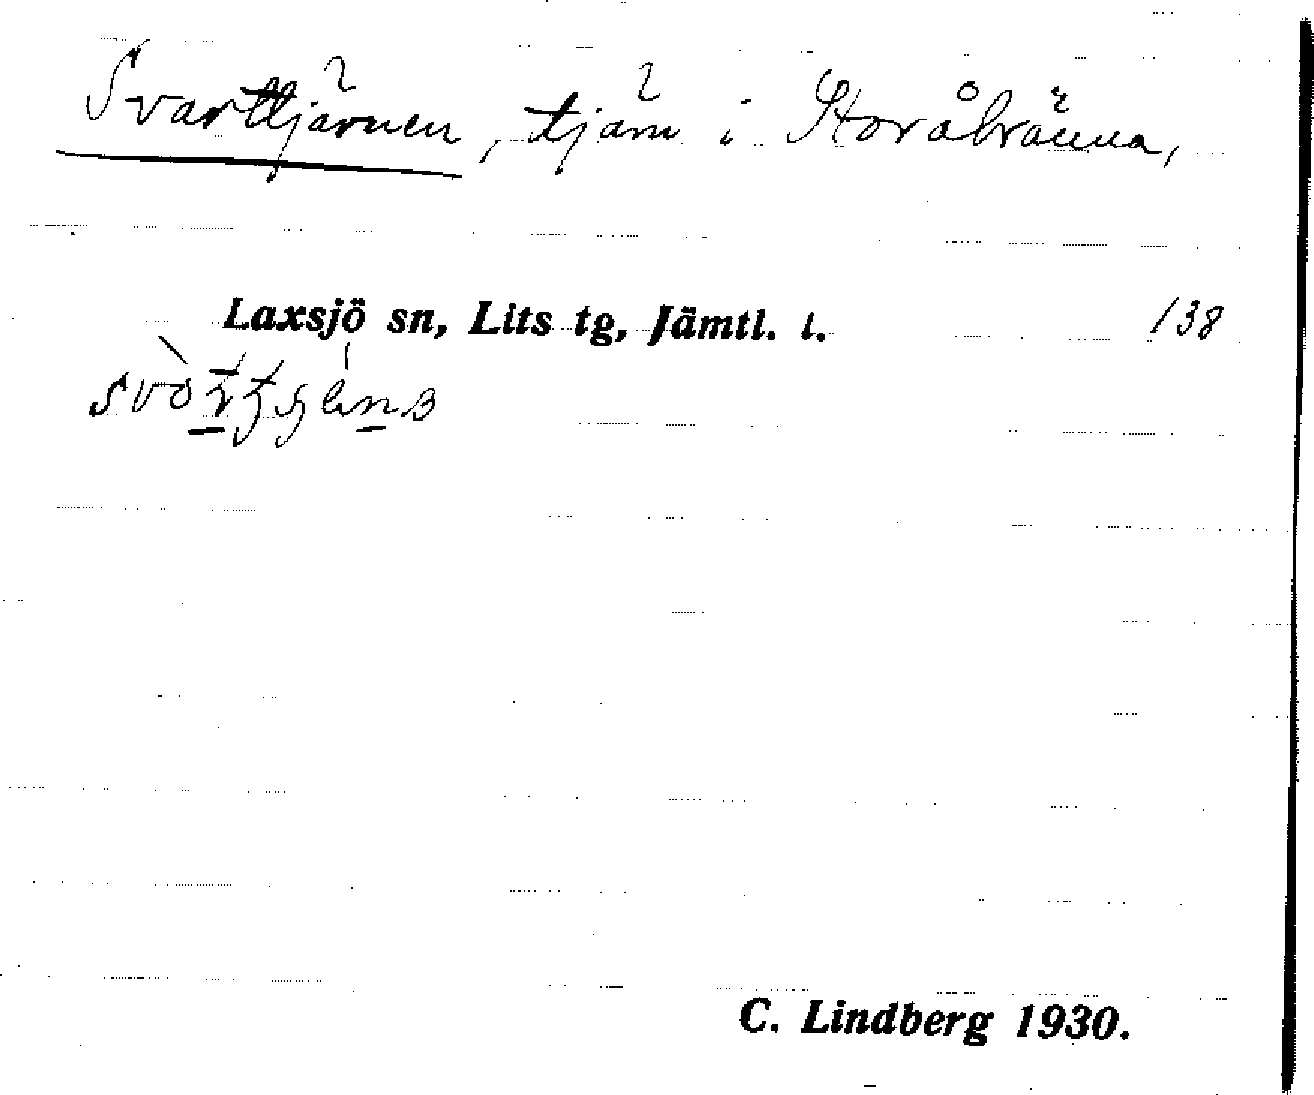 Svarttjärnen, tjärn i Storåbränna,
Laxsjö sn, Lits tg, Jämtl. l. 138
C. Lindberg 1930.